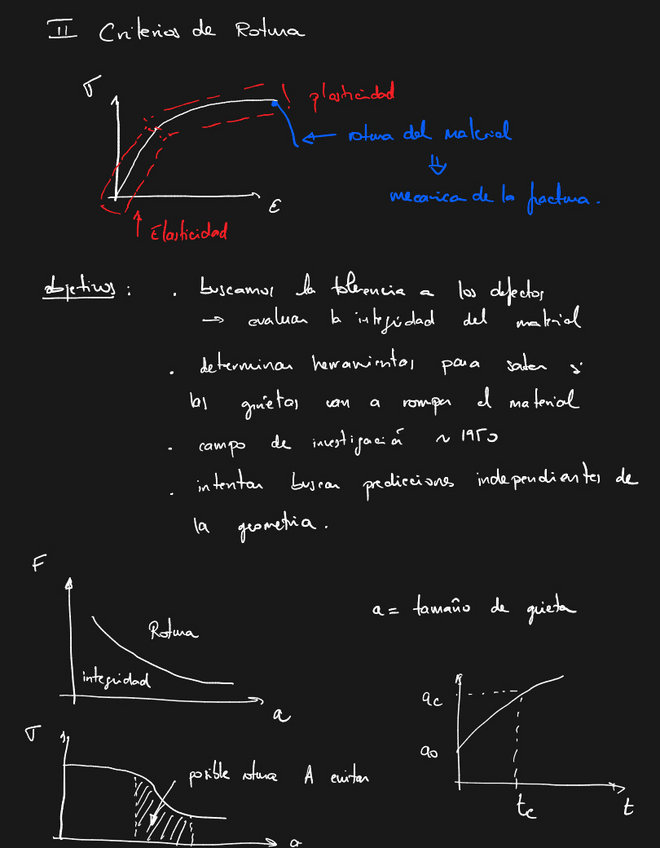 II Criterios de Rotura
σ
plasticidad
← rotura del material
⇓
mecanica de la fractura.
ε
Elasticidad
objetivos : . buscamos la tolerencia a los defectos
→ evaluar la integridad del material
. determinar herramientas para saber si
las grietas van a romper el material
. campo de investigación ~ 1950
. intentar buscar predicciones independientes de
la geometria.
F
Rotura
integridad
a
a = tamaño de grieta
σ
posible rotura A evitar
a
ac
a0
tc
t